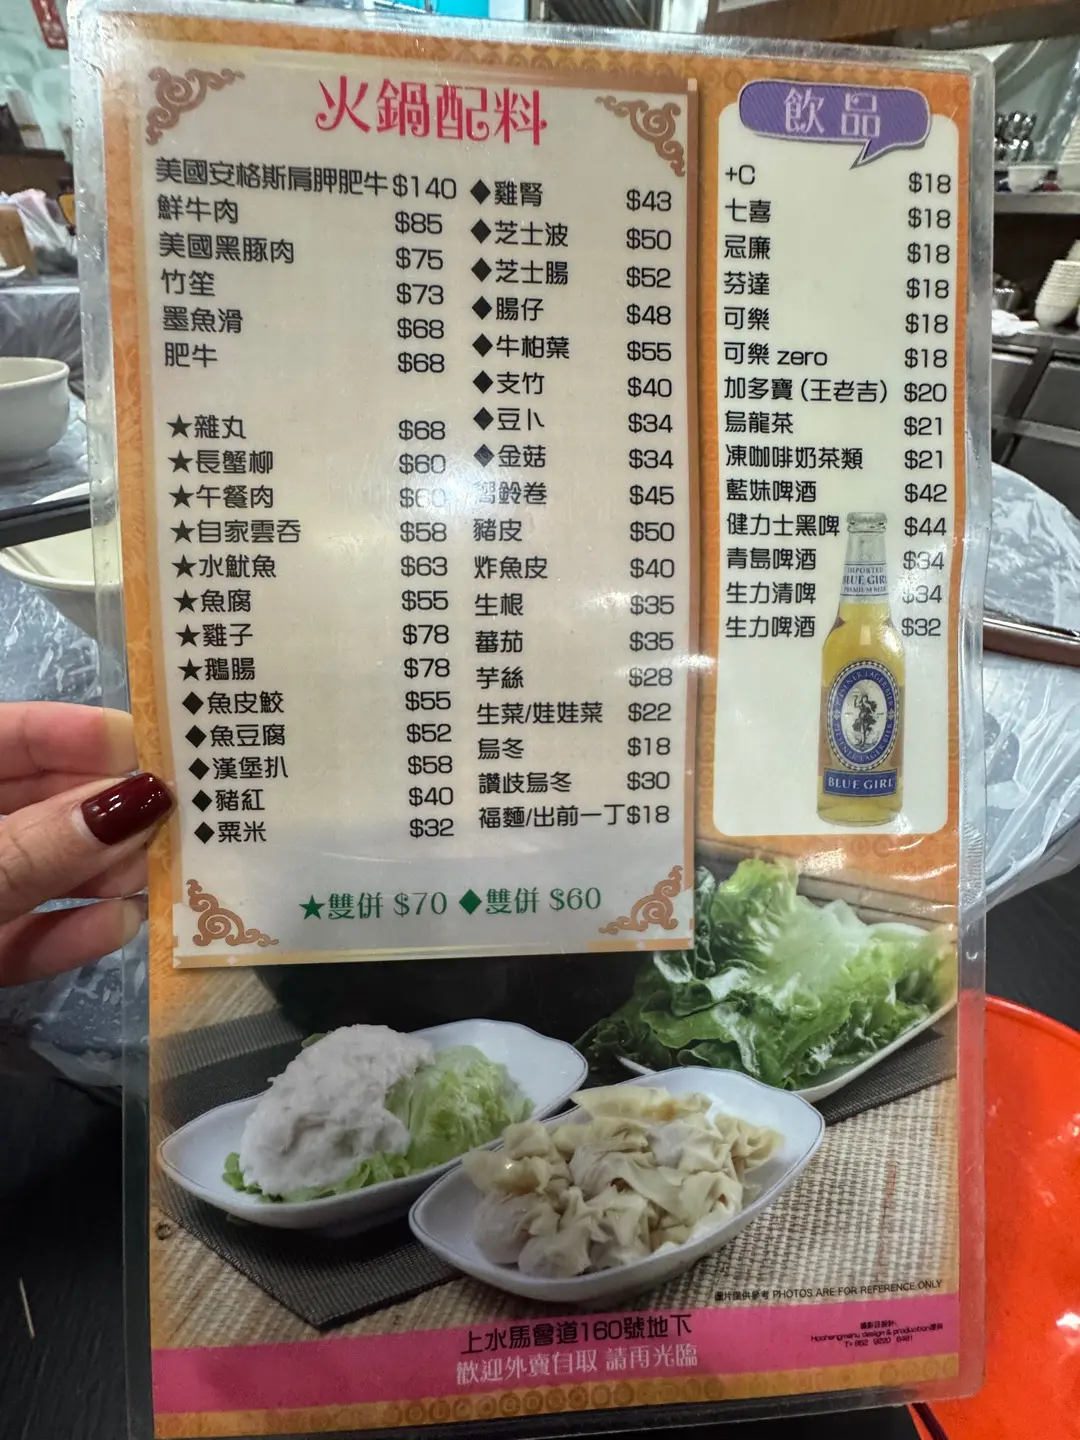 火鍋配料
美國安格斯肩胛肥牛 $140
鮮牛肉 $85
美國黑豚肉 $75
竹笙 $73
墨魚滑 $68
肥牛 $68
★雜丸 $68
★長蟹柳 $60
★午餐肉 $60
★自家雲吞 $58
★水魷魚 $63
★魚腐 $55
★雞子 $78
★鵝腸 $78
◆魚皮餃 $55
◆魚豆腐 $52
◆漢堡扒 $58
◆豬紅 $40
◆粟米 $32
◆雞腎 $43
◆芝士波 $50
◆芝士腸 $52
◆腸仔 $48
◆牛柏葉 $55
◆支竹 $40
◆豆卜 $34
◆金菇 $34
響鈴卷 $45
豬皮 $50
炸魚皮 $40
生根 $35
蕃茄 $35
芋絲 $28
生菜/娃娃菜 $22
烏冬 $18
讚岐烏冬 $30
福麵/出前一丁 $18
★雙併 $70 ◆雙併 $60
飲品
+C $18
七喜 $18
忌廉 $18
芬達 $18
可樂 $18
可樂 zero $18
加多寶 (王老吉) $20
烏龍茶 $21
凍咖啡奶茶類 $21
藍妹啤酒 $42
健力士黑啤 $44
青島啤酒 $34
生力清啤 $34
生力啤酒 $32
IMPORTED
BLUE GIRL
PREMIUM BEER
BLUE GIRL
圖片僅供參考 PHOTOS ARE FOR REFERENCE ONLY
上水馬會道160號地下
歡迎外賣自取 請再光臨